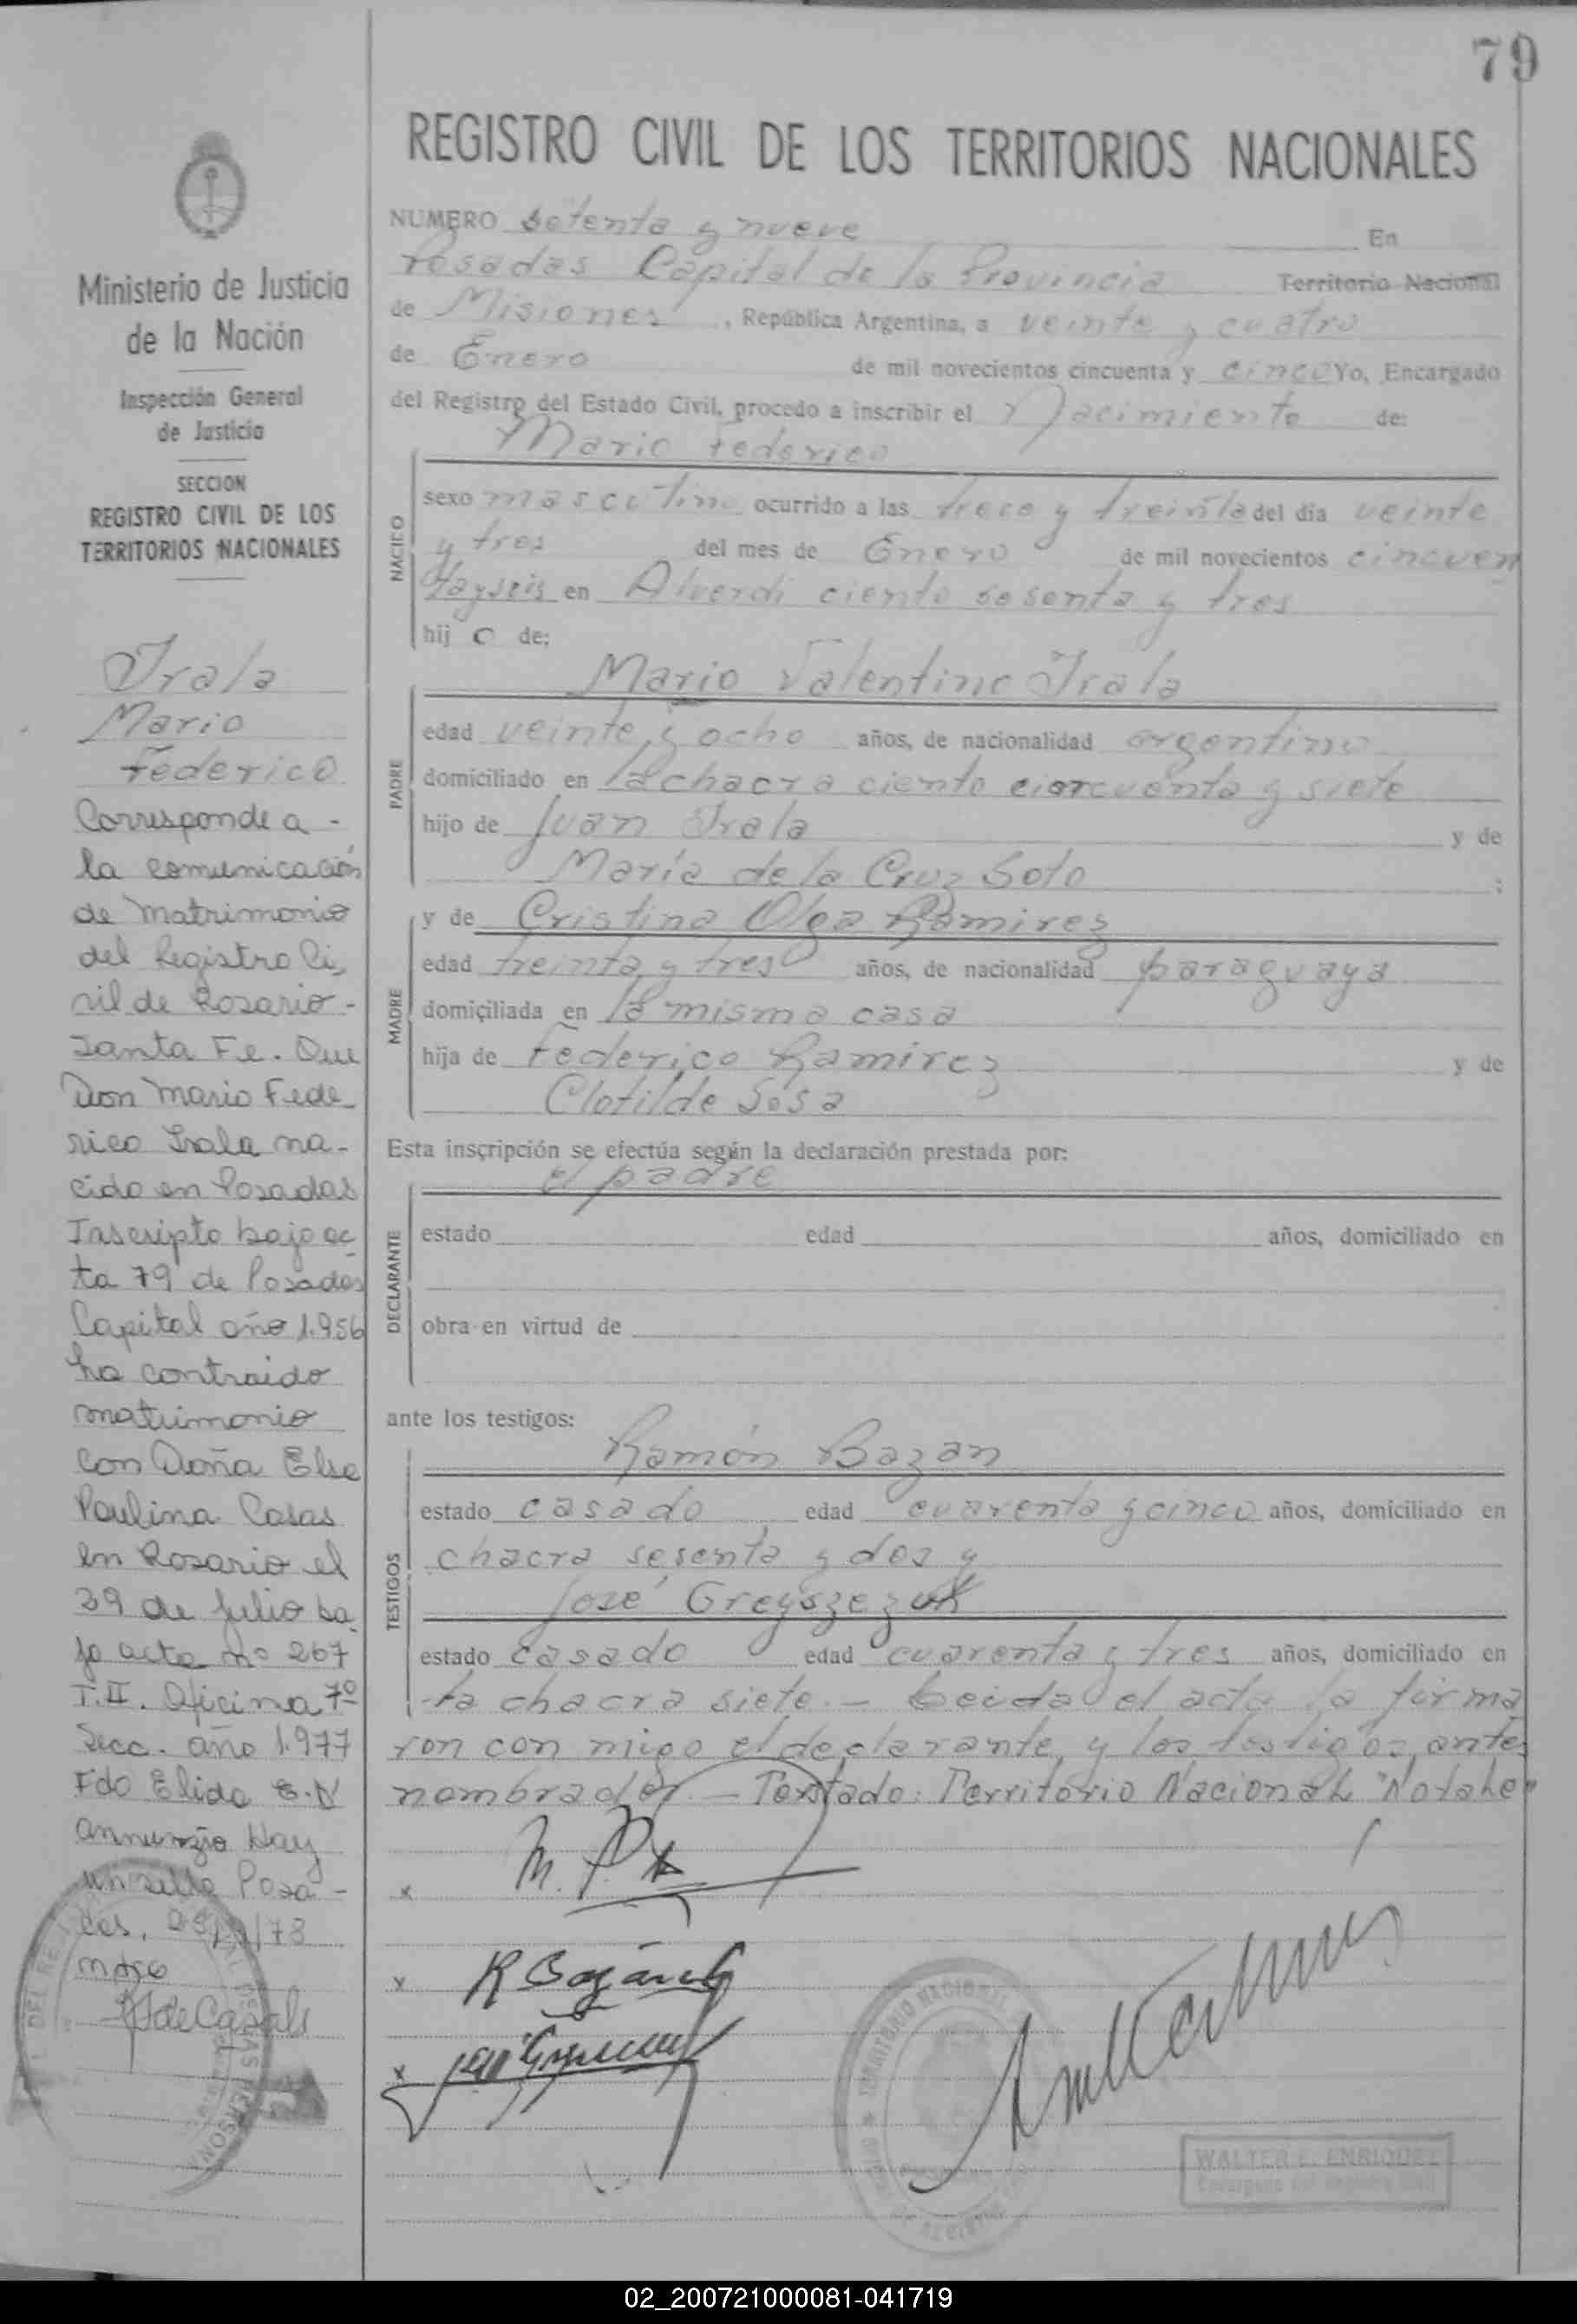 79
REGISTRO CIVIL DE LOS TERRITORIOS NACIONALES
NUMERO setenta y nueve En
Posadas Capital de la Provincia Territorio Nacional
de Misiones, República Argentina, a veinte y cuatro
de Enero de mil novecientos cincuenta y cinco Yo, Encargado
del Registro del Estado Civil, procedo a inscribir el Nacimiento de:
Mario Federico
NACIDO
sexo masculino ocurrido a las trece y treinta del día veinte
y tres del mes de Enero de mil novecientos cincuen
tayseis en Alverdi ciento sesenta y tres
hij o de:
Mario Valentino Irala
PADRE
edad veinte y ocho años, de nacionalidad argentino
domiciliado en la chacra ciento cincuenta y siete
hijo de Juan Irala y de
María de la Cruz Soto ;
MADRE
y de Cristina Olga Ramirez
edad treinta y tres años, de nacionalidad paraguaya
domiciliada en la misma casa
hija de Federico Ramirez y de
Clotilde Sosa
Esta inscripción se efectúa según la declaración prestada por:
el padre
DECLARANTE
estado edad años, domiciliado en
obra en virtud de
ante los testigos:
Ramón Bazan
TESTIGOS
estado casado edad cuarenta y cinco años, domiciliado en
chacra sesenta y dos y
José Greyszezuk
estado casado edad cuarenta y tres años, domiciliado en
la chacra siete.- Leida el acta la firma
ron con migo el declarante, y los testigos, antes
nombrados.- Testado: Territorio Nacional "Notahe"
x
x R Bazán
x
TERRITORIO NACIONAL
WALTER E. ENRIQUEZ
Encargado del Registro Civil
Ministerio de Justicia
de la Nación
Inspección General
de Justicia
SECCION
REGISTRO CIVIL DE LOS
TERRITORIOS NACIONALES
Irala
Mario
Federico
Corresponde a -
la comunicación
de Matrimonio
del Registro Ci,
vil de Rosario -
Santa Fe. Que
Don Mario Fede_
rico Irala na-
cido en Posadas
Inscripto bajo ac
ta 79 de Posadas
Capital año 1.956
ha contraido
matrimonio
con Doña Elsa
Paulina Casas
en Rosario el
29 de Julio ba_
jo acta nº 267
T.II. Oficina 7º
Secc. año 1.977
Fdo Elida E.D'
Annunzio Hay
un sello Posa -
das, /78
02_200721000081-041719